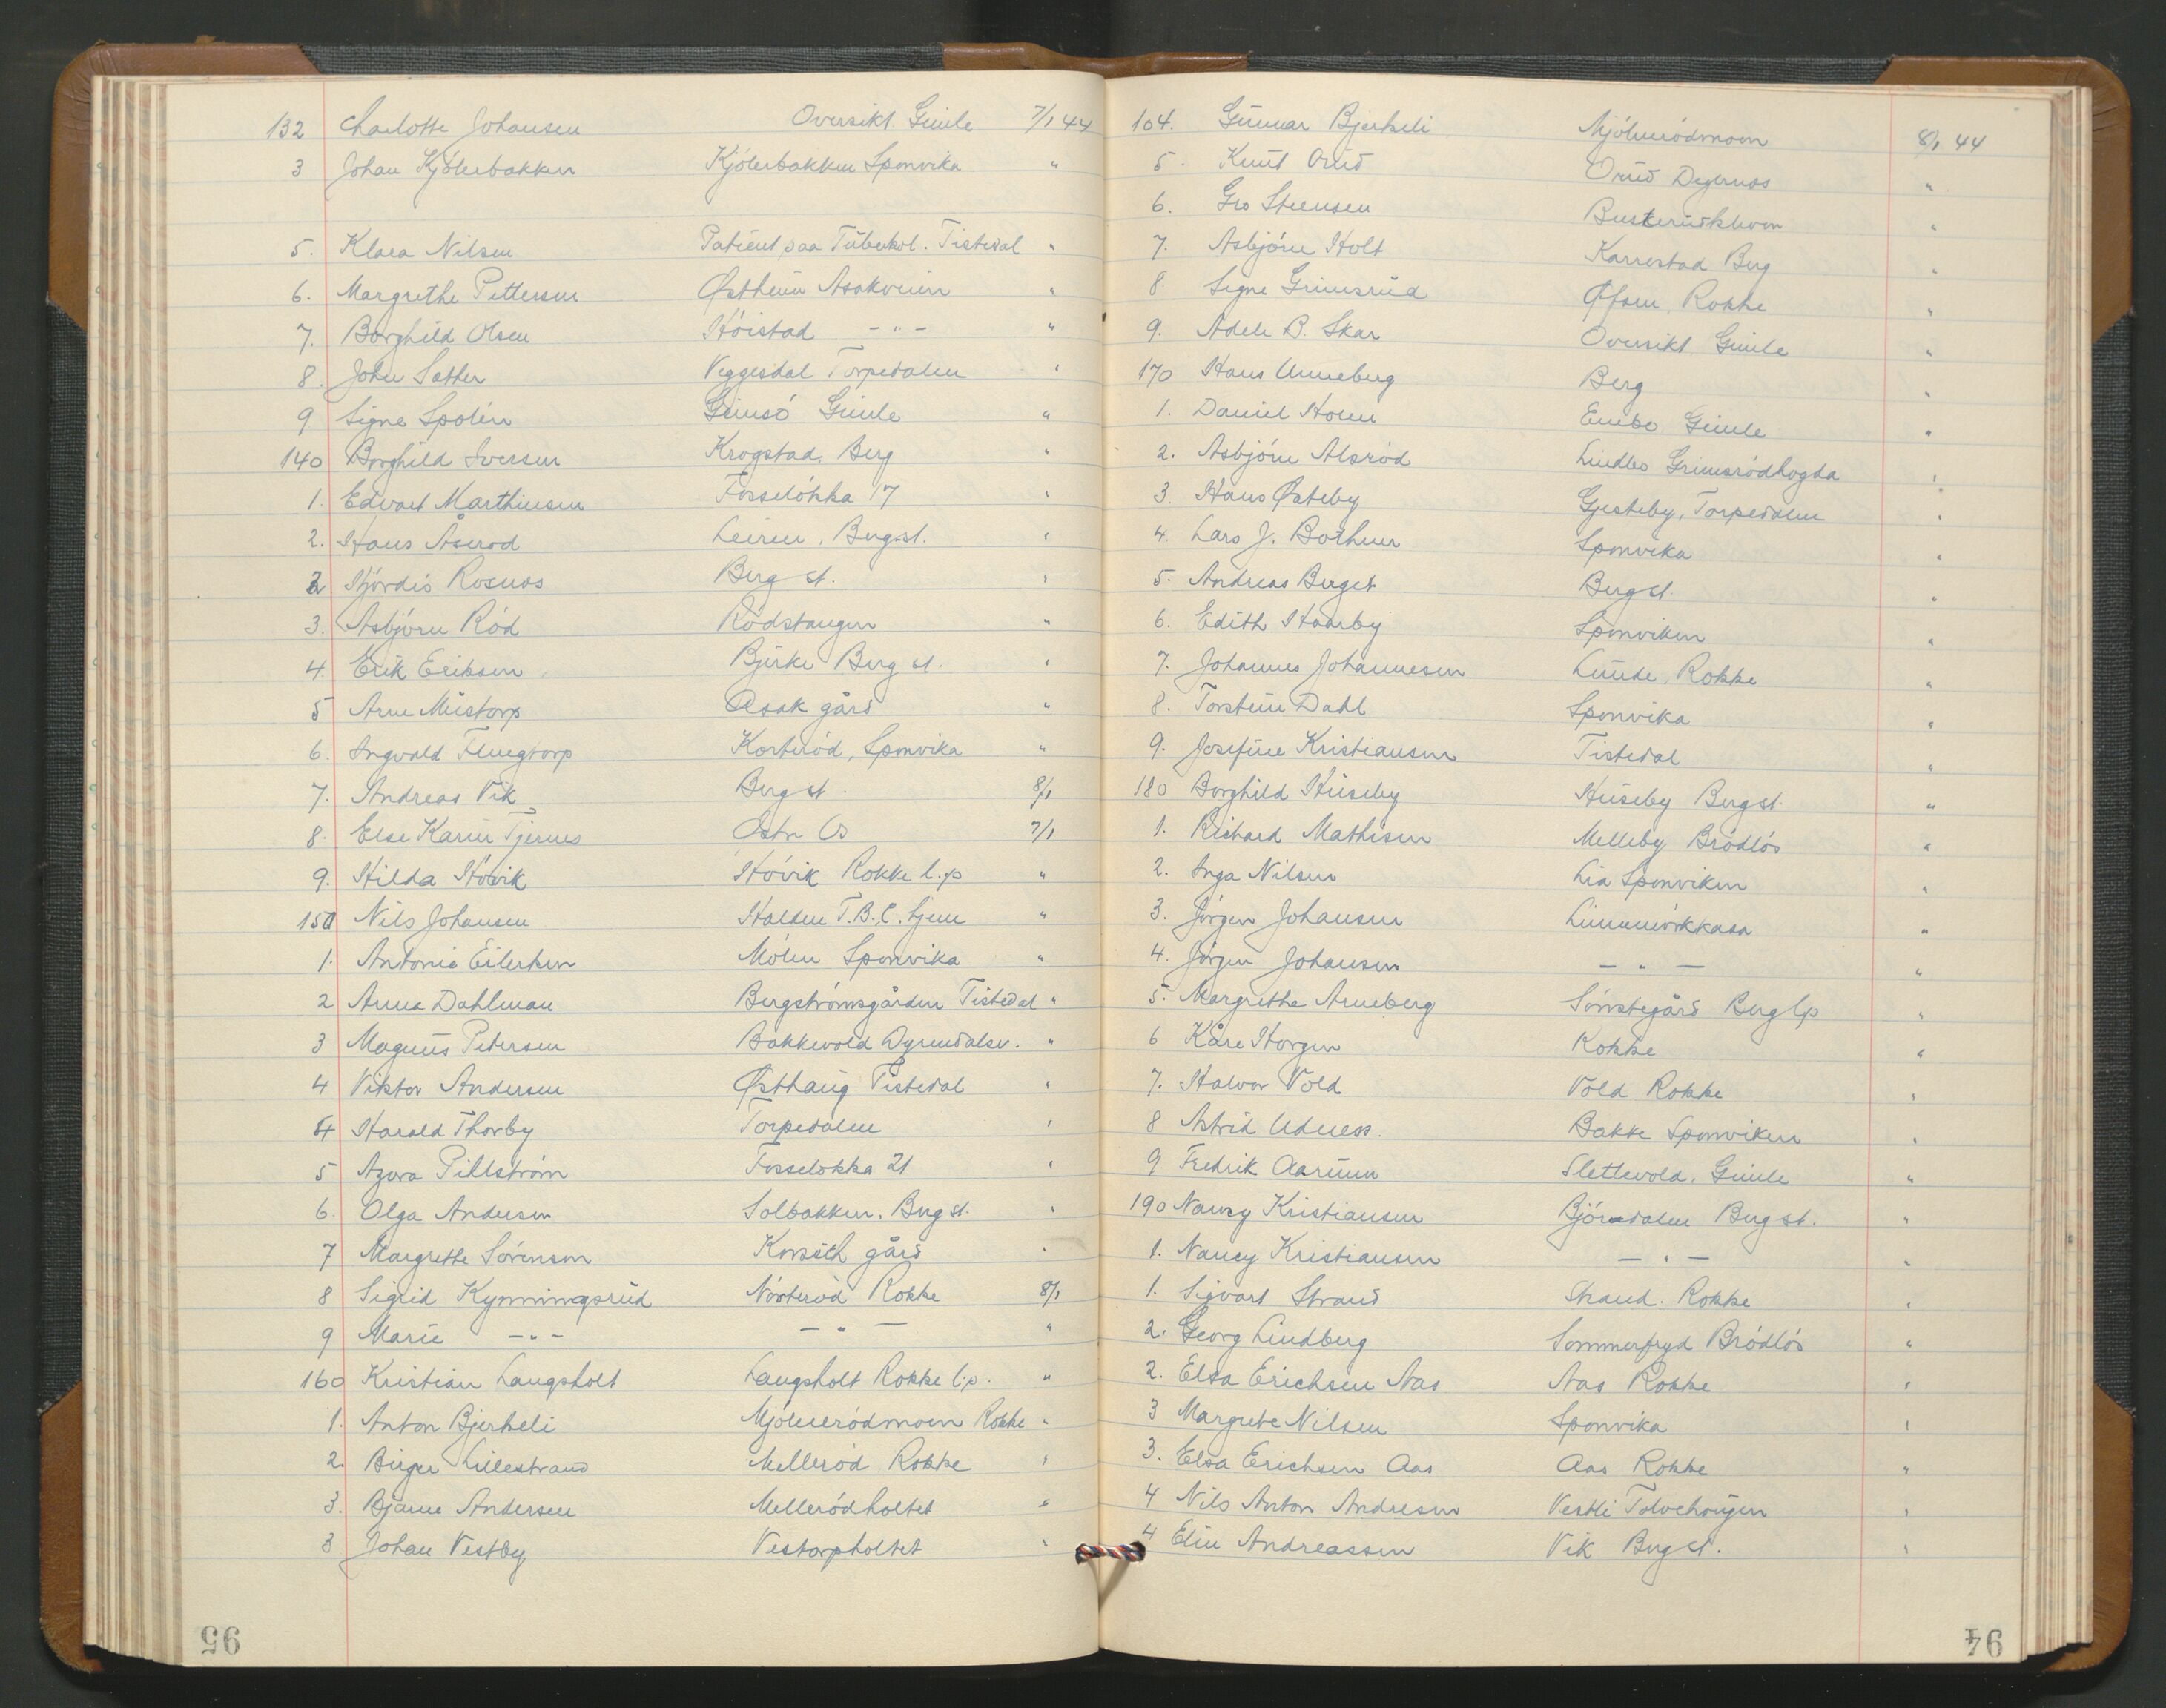 132 Charlotte Johansen Oversikt Gimle 7/1 44
3 Johan Kjølerbakken Kjølerbakken Sponvika "
5. Klara Nilsen Patient paa Tuberkol. Tistedal "
6. Margrethe Pettersen Østheim Asakveien "
7. Borghild Olsen Høistad - " - "
8. John Sæther Veggesdal Torpedalen "
9 Signe Spolén Grimsö Gimle "
140 Borghild Iversen Krogstad. Berg "
1. Edvart Marthinsen Fosseløkka 17 "
2. Hans Åserød Leiren, Berg st. "
2 Hjørdis Rosnes Berg st. "
3. Asbjørn Rød Rødstangen "
4. Erik Eriksen Bjerke Berg st. "
5 Arne Mustorp Asak gård "
6. Ingvald Flengtorp Korterød, Sponvika "
7. Andreas Vik Berg st. 8/1
8. Else Karin Tjernes Østre Os 7/1
9. Hilda Høvik Høvik Rokke l.p "
150 Nils Johansen Halden T.B.C. hjem "
1. Antonie Eilertsen Mølen Sponvika "
2 Anna Dahlman Bergstrømsgården Tistedal "
3 Magnus Petersen Bakkevold Dyrendalsv. "
4 Viktor Andersen Østhaug Tistedal "
4 Harald Thorby Torpedalen "
5 Azora Pihlstrøm Fosseløkka 21 "
6. Olga Andersen Solbakken. Berg st. "
7 Margrethe Sørensen Korseth gård "
8 Sigrid Kynningsrud Nøsterød Rokke 8/1
9 Marie - " - - " - "
160 Kristian Langsholt Langsholt Rokke l.p. "
1. Anton Bjerkeli Mjølnerødmoen Rokke "
2. Birger Lillestrand Mellerød Rokke "
3. Bjarne Andersen Mellerødholtet "
3 Johan Vestby Vestorpholtet "
95
104. Gunnar Bjerkeli Mjølnerødmoen 8/1 44
5. Knut Orud Orud Degernes "
6. Gro Steensen Buskerudkleven "
7. Asbjørn Holt Karrestad Berg "
8. Signe Grimsrud Rokke "
9. Adele B. Skar Oversikt Gimle "
170 Hans Unneberg Berg "
1. Daniel Holm Enebo Gimle "
2. Asbjørn Alsrød Lindbo Grimsrødhøgda "
3. Hans Østeby Gjesteby, Torpedalen "
4. Lars J. Bothner Sponvika "
5. Andreas Berget Berg st. "
6. Edith Haarby Sponviken "
7. Johannes Johannesen Lunde, Rokke "
8. Torstein Dahl Sponvika "
9. Josefine Kristiansen Tistedal "
180 Borghild Huseby Huseby Berg st. "
1. Richard Mathisen Melleby Brødløs "
2. Inga Nilsen Lia Sponviken "
3. Jørgen Johansen "
4. Jørgen Johansen - " - "
5. Margrethe Arneberg Sørnstegård Berg lp "
6 Kåre Horgen Rokke "
7. Halvor Vold Vold Rokke "
8 Astrid Udness. Bakke Sponviken "
9 Fredrik Aarnum Slettevold. Gimle "
190 Nancy Kristiansen Bjørndalen Berg st. "
1. Nancy Kristiansen - " - "
1. Sigvart Strand Strand. Rokke "
2. Georg Lindberg Sommerfryd Brødløs "
2. Elsa Erichsen Aas Aas Rokke "
3 Margrete Nilsen Sponvika "
3. Elsa Erichsen Aas Aas Rokke "
4 Nils Anton Andresen Vestli Tolvehaugen "
4 Elin Andreassen Vik Berg st. "
94